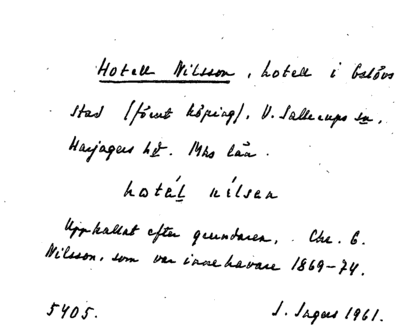 Hotell Nilsson, hotell i Eslövs
stad (förut köping), V. Sallerups sn,
Harjagers hd. Mhs län.
hotäl nilsen
Uppkallat efter grundaren, Chr. G.
Nilsson, som var innehavare 1869-74.
5405. J. Ingers 1961.